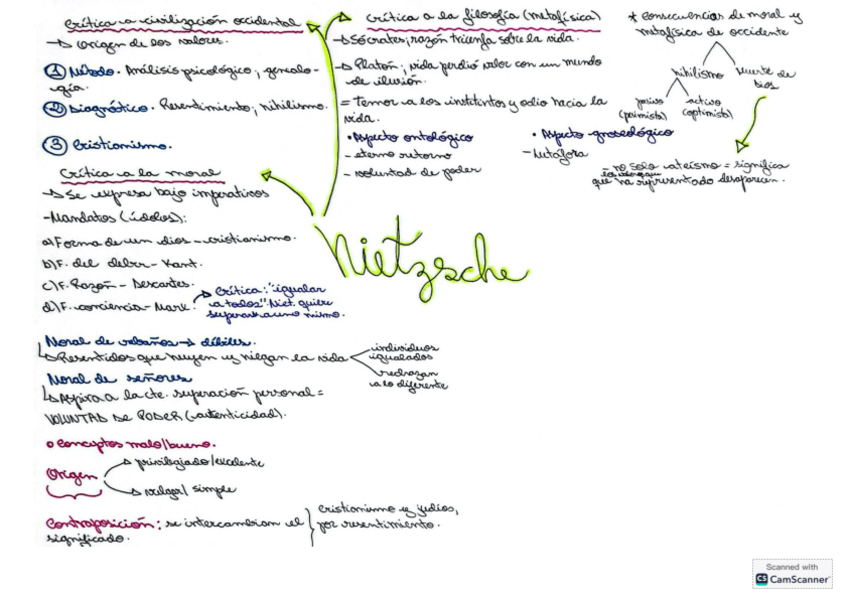 Crítica a civilización occidental
→ Origen de los valores.
① Método. Análisis psicológico, genealo-
gía.
② Diagnóstico. Resentimiento, nihilismo.
③ Cristianismo.
Crítica a la moral
→ Se expresa bajo imperativos
-Mandatos (ídolos):
a) Forma de un dios - cristianismo.
b) F. del deber - Kant.
c) F. Razón - Descartes.
d) F. conciencia - Marx.
→ Crítica: "igualar
a todos". Niet. quiere
superarse a uno mismo.
Crítica a la filosofía (metafísica)
→ Sócrates; razón triunfa sobre la vida.
→ Platón; vida perdió valor con un mundo
de ilusión.
= Temor a los instintos y odio hacia la
vida.
• Aspecto ontológico
- eterno retorno
- voluntad de poder
• Aspecto gnoseológico
- Metáfora
* consecuencias de moral y
metafísica de occidente
nihilismo
muerte de
Dios
pasivo
(pesimista)
activo
(optimista)
- no solo ateísmo = significa
que ha representado desaparecen.
Nietzsche
Moral de rebaños → débiles.
→ Resentidos que huyen y niegan la vida
individuos
igualados
rechazan
a lo diferente
Moral de señores
→ Aspira a la cte. superación personal =
VOLUNTAD DE PODER (autenticidad).
o Conceptos malo/bueno.
Origen
→ privilegiado/excelente
→ vulgar/simple
Contraposición: se intercambian el
significado.
cristianismo y judíos,
por resentimiento.
Scanned with
CS CamScanner